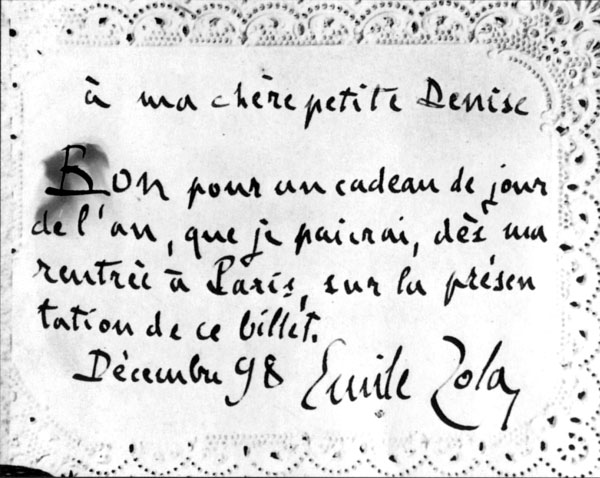 à ma chère petite Denise
Bon pour un cadeau de jour
de l'an, que je paierai, dès ma
rentrée à Paris, sur la présen
tation de ce billet.
Décembre 98 Emile Zola